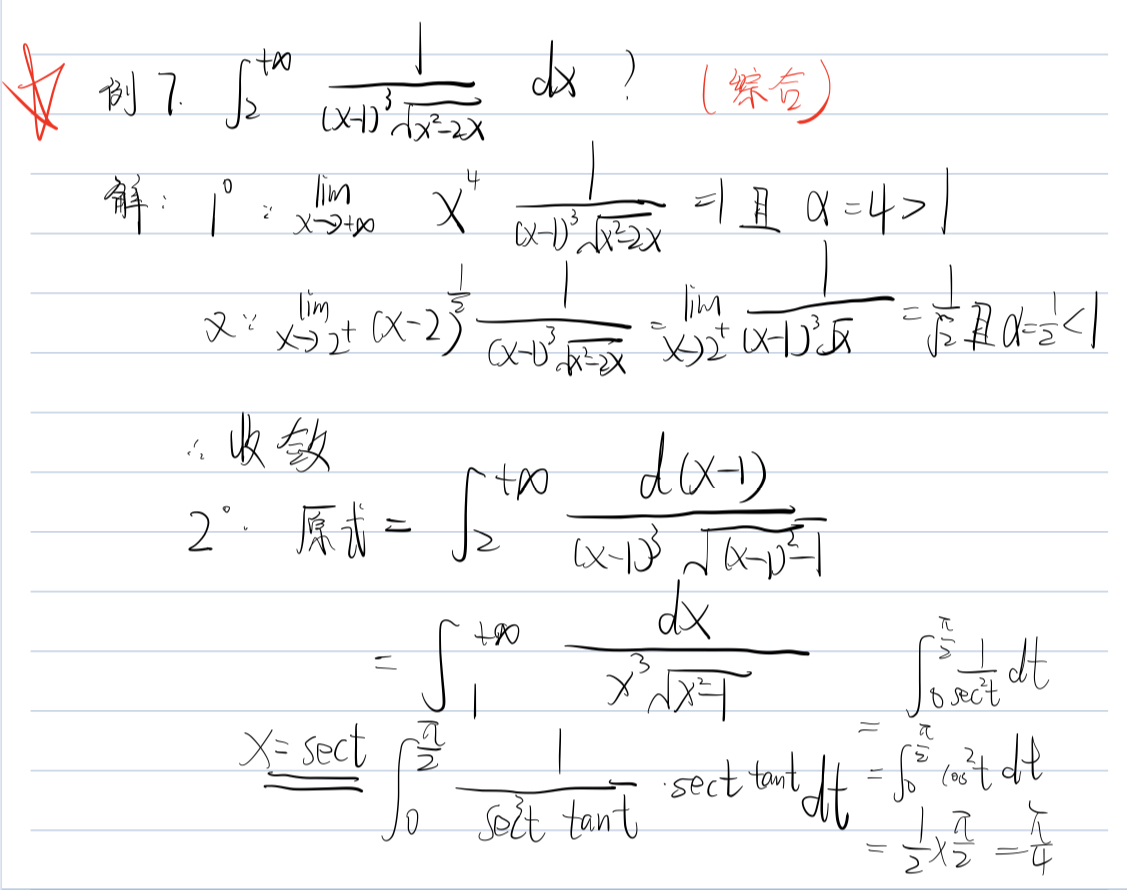 例7. ∫₂^{+∞} 1/((x-1)³√(x²-2x)) dx ? (综合)
解: 1° ∵ lim_{x→+∞} x⁴ 1/((x-1)³√(x²-2x)) =1 且 α=4>1
又∵ lim_{x→2⁺} (x-2)^{1/2} 1/((x-1)³√(x²-2x)) = lim_{x→2⁺} 1/((x-1)³√x) = 1/√2 且 α=1/2<1
∴ 收敛
2°. 原式 = ∫₂^{+∞} d(x-1)/((x-1)³√((x-1)²-1))
= ∫₁^{+∞} dx/(x³√(x²-1))
x=sect ∫₀^{π/2} 1/(sec³t tant) · sect tant dt
= ∫₀^{π/2} 1/sec²t dt
= ∫₀^{π/2} cos²t dt
= 1/2 × π/2 = π/4